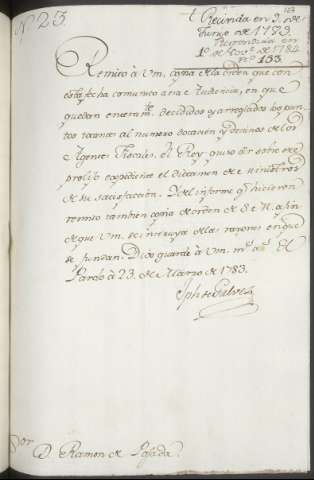 Nº 23.
Recivida en 9. de
Junio de 1783.
en
1º de de 1784
nº 133
Remito à Vm. copia de la orden que con
esta fecha comunico a esa Audiencia, en que
quedan enteramte. decididos y arreglados los pun
tos tocantes al numero
Agentes Fiscales. El Rey quiso oir sobre este
prolijo expediente el dictamen de ministros
de su satisfacción. Y del informe qe. hicieron
remito tambien copia de orden de S. M. a fin
de que Vm. se instruya de las razones en que
se fundan. Dios guarde à Vm. ms. as. El
Pardo à 23. de Marzo de 1783.
Jph de Galvez
Sor.
D. Ramon de Posada.